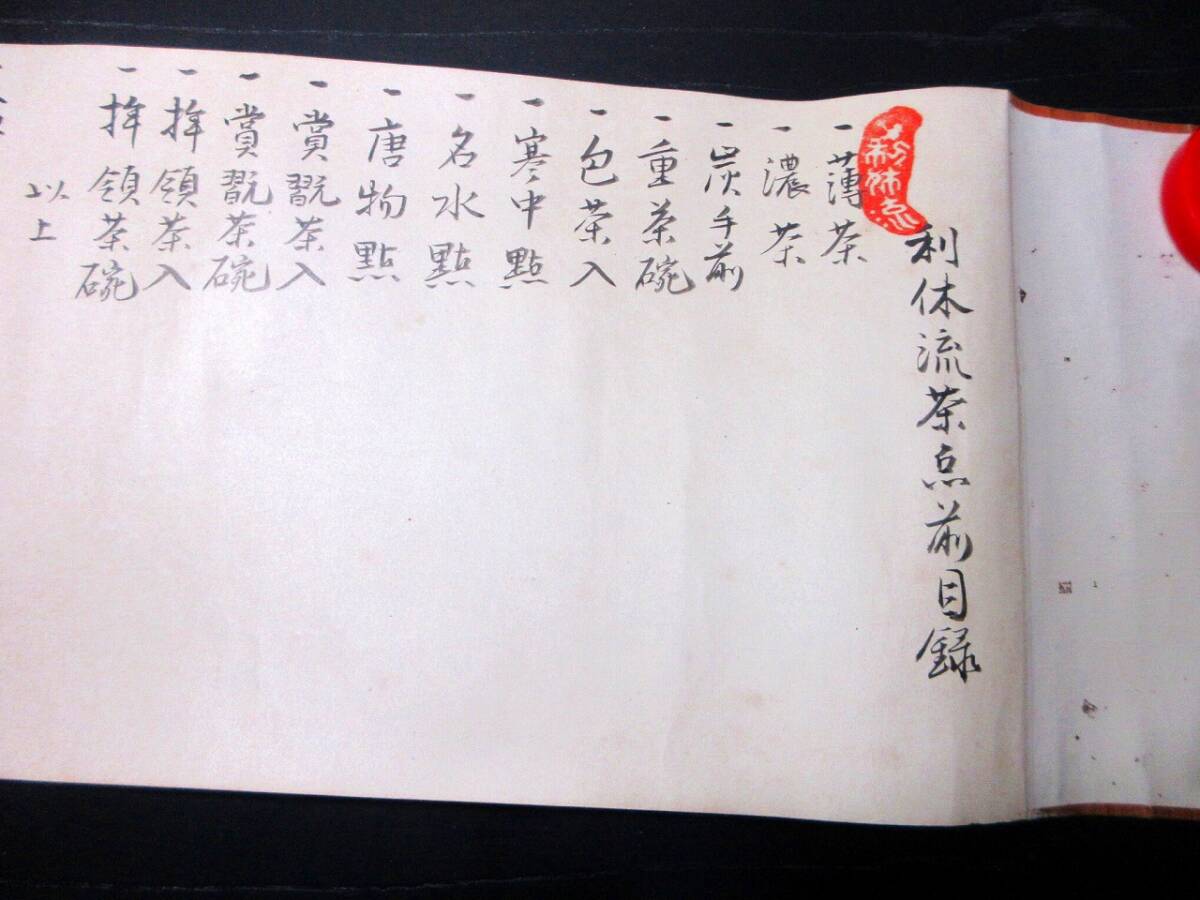 利休流茶点前目録
一薄茶
一濃茶
一炭手前
一重茶碗
一包茶入
一寒中點
一名水點
一唐物點
一賞翫茶入
一賞翫茶碗
一拝領茶入
一拝領茶碗
以上